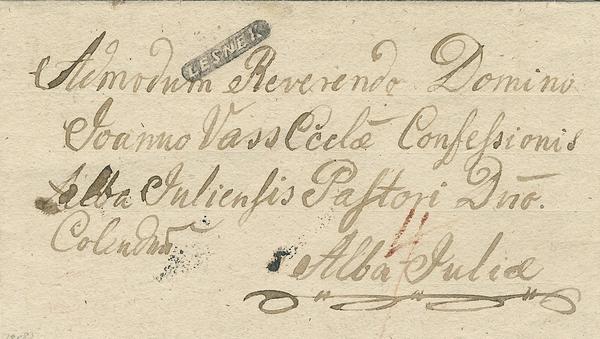 LESNEK
Admodum Reverendo Domino
Joanno Vass Ecclæ Confessionis
Alba Juliensis Pastori Dño.
Colendm̄
4
Alba Juliæ